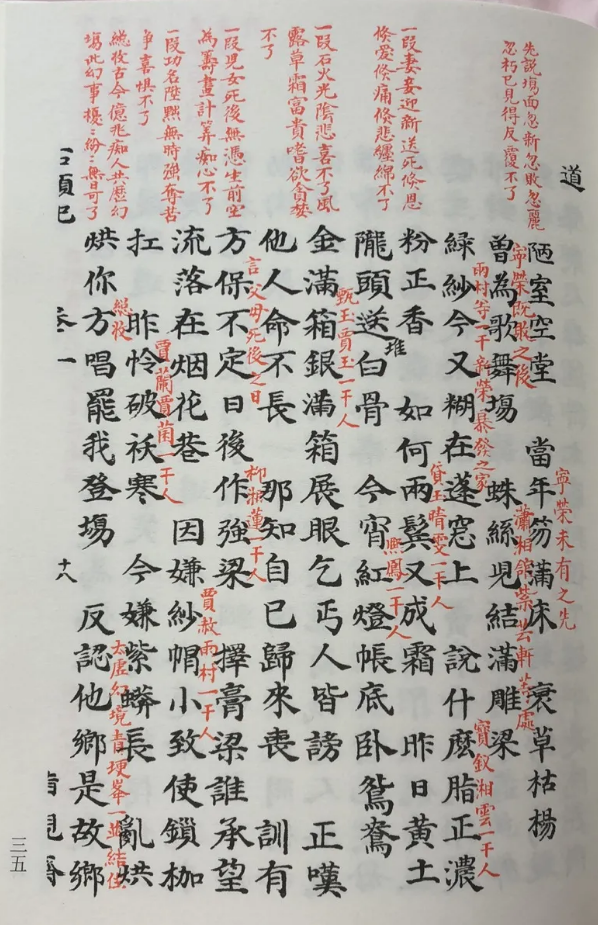 先說塲面忽新忽敗忽麗
忽朽已見得反覆不了
一段妻妾迎新送死倐恩
倐愛倐痛倐悲纏綿不了
一段石火光陰悲喜不了風
露草霜富貴嗜欲貪婪
不了
一段児女死後無憑生前空
為籌畫計算痴心不了
一段功名陞黜無時強奪苦
争喜惧不了
總收古今億兆痴人共歷幻
塲此幻事擾〻紛〻無日可了
道
陋室空堂 當年笏滿床 衰草枯楊
寧榮未有之先
寧榮既敗之後
曽為歌舞塲 蛛絲児結滿雕梁
瀟湘舘紫芸軒等處
雨村等一干新榮暴發之家
緑紗今又糊在蓬窓上 說什麽脂正濃
寶釵湘雲一干人
粉正香 如何兩鬂又成霜 昨日黃土
貸玉晴雯一干人
隴頭送白骨 今宵紅燈帳底卧鴛鴦
堆
熙鳳一干人
金滿箱銀滿箱展眼乞丐人皆謗 正嘆
甄玉賈玉一干人
他人命不長 那知自已歸來喪 訓有
言父母死後之日
方保不定日後作強梁 擇膏梁誰承望
柳湘蓮一干人
流落在烟花巷 因嫌紗帽小致使鎖枷
賈赦雨村一干人
扛 昨怜破袄寒 今嫌紫蟒長 亂烘
賈蘭賈菌一干人
烘你方唱罷我登塲 反認他鄉是故鄉
總收
太虛幻境青埂峯一並結住
卷一
十八
三五